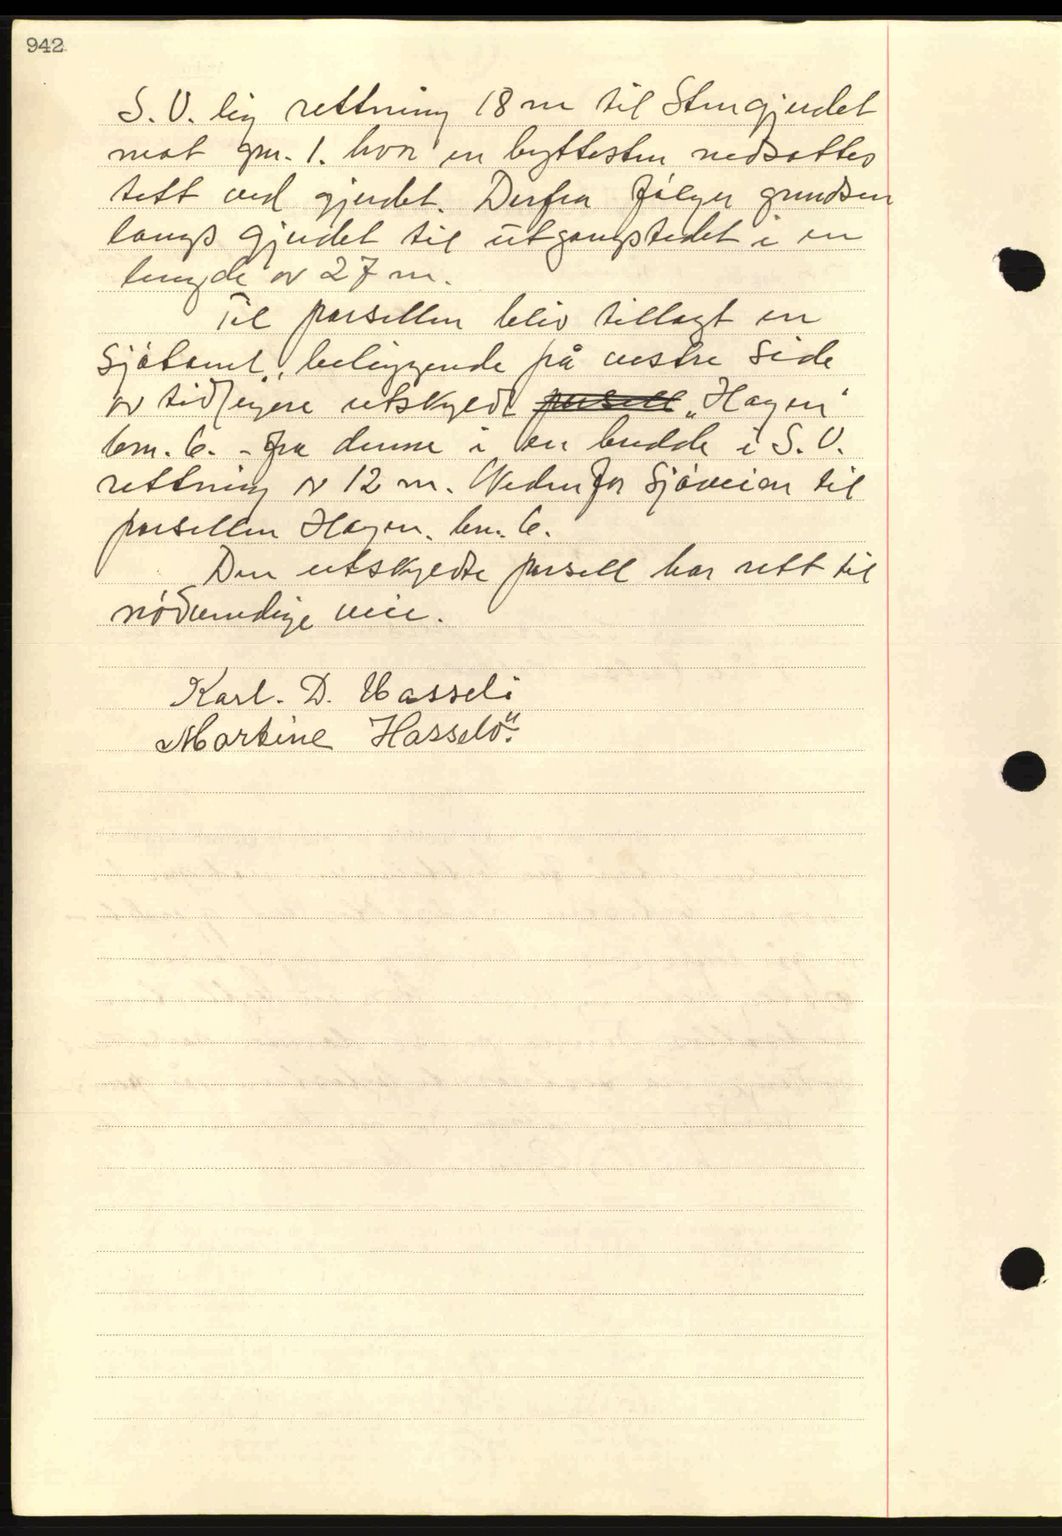 942
S. V. lig rettning 18 m til Stengjerdet
mot gn. 1. hvor en byttesten nedsattes
tett ved gjerdet. Derfra følger grendsen
langs gjerdet til utgangstedet i en
lengde av 27 m.
Til parsellen blev tillagt en
Sjøtomt, beliggende på vestre side
av tidligere utskyldt parsell „Hagen“
bn. 6. - fra denne i en bredde i S. V.
rettning av 12 m. Nedenfor Sjøveien til
parsellen Hagen. bn. 6.
Den utskyldte parsell har rett til
nødvendige veie.
Karl. D. Hasselö
Martine Hasselö.